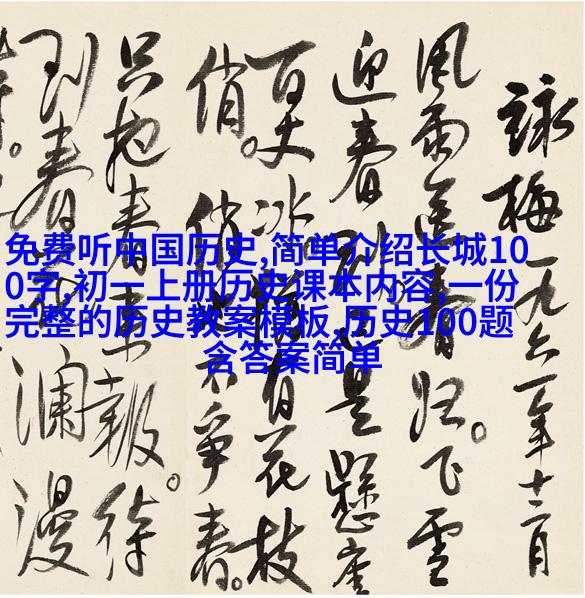 詠梅一九六一年十二月
風雨送春归。飞雪
迎春到是懸崖
百丈冰有花枝
俏。俏不爭春。
只把春来報。待
到春瀾漫
免费听中国历史,简单介绍长城10
0字,初一上册历史课本内容,一份
完整的历史教案模板,历史100题
含答案简单